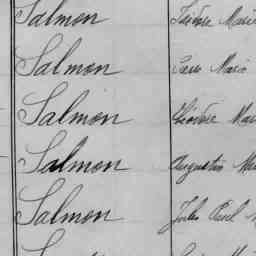 Salmon Isidore Marie
Salmon Pierre Marie
Salmon Théodore Mar
Salmon Augustin Ma
Salmon Jules Paul M